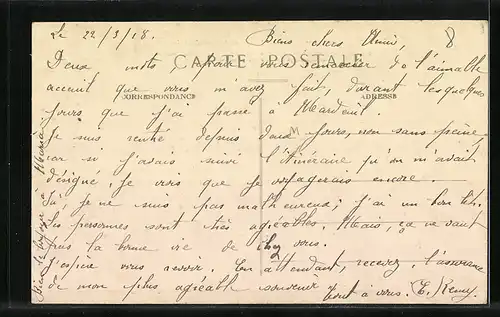 Le 22/3/18.
Biens chers Amis,
CARTE POSTALE
Deux mots pour vous remercier de l'aimable
accueil que vous m'avez fait, durant les quelques
CORRESPONDANCE
ADRESSE
jours que j'ai passé à Mardeuil.
Je suis rentré depuis deux jours, non sans peine,
car si j'avais suivi l'itinéraire qu'on m'avait
désigné, je crois que je voyagerais encore.
Ici, je ne suis pas malheureux; j'ai un bon lit.
Les personnes sont très agréables. Mais, ça ne vaut
pas la bonne vie de chez vous.
J'espère vous revoir. En attendant, recevez, l'assurance
de mon plus agréable souvenir
Tout à vous. E. Remy
Bien le bonjour à
8